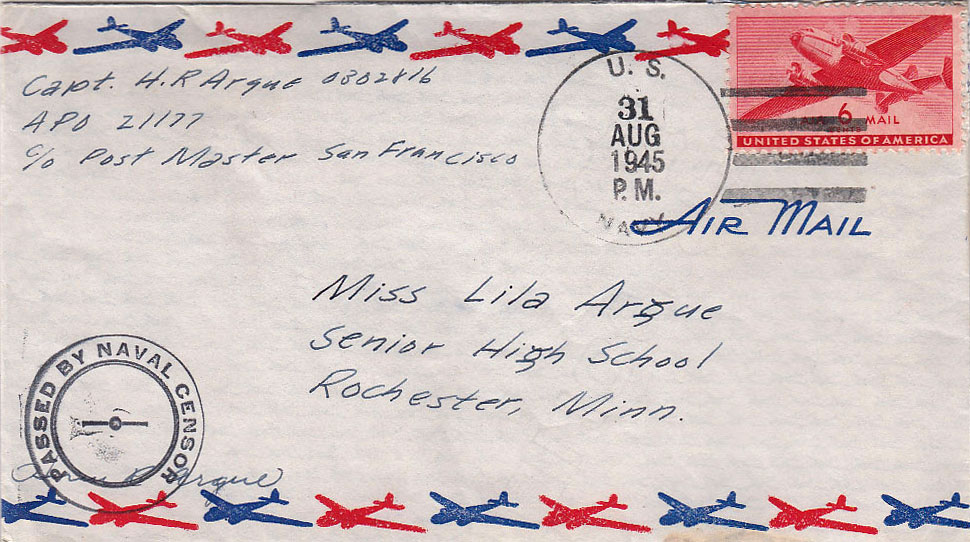 Capt. H.R Argue 0802816
APO 21177
c/o Post Master San Francisco
U. S.
31
AUG
1945
P.M.
NAVY
AIR 6 MAIL
CENTS
UNITED STATES OF AMERICA
AIR MAIL
Miss Lila Argue
Senior High School
Rochester, Minn.
PASSED BY NAVAL CENSOR
Argue